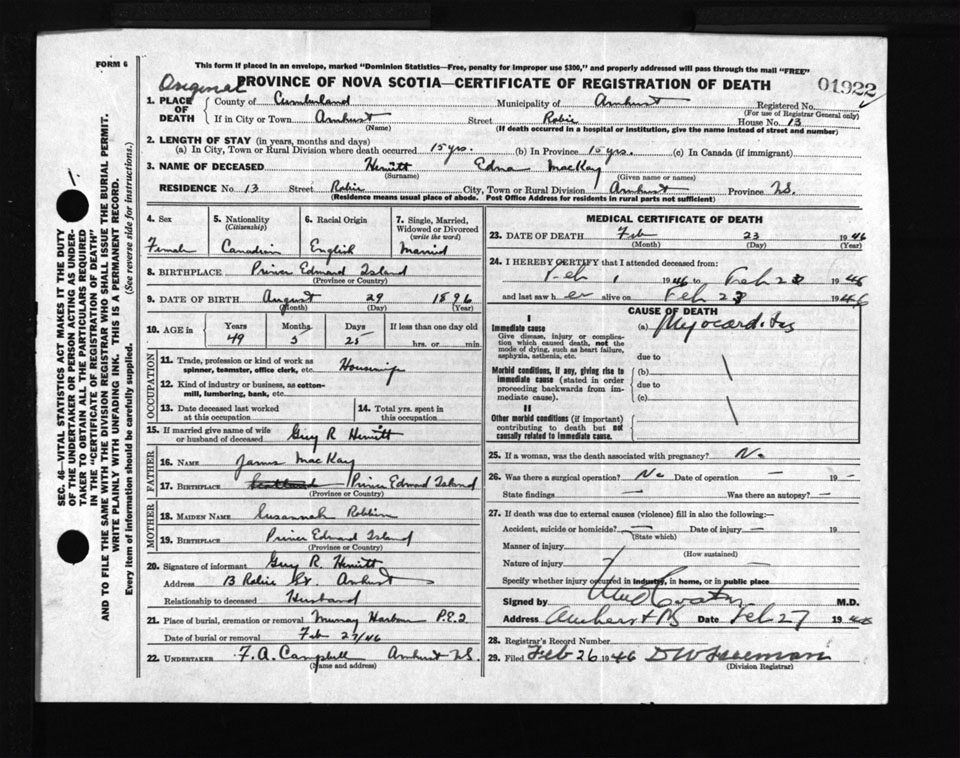 FORM 6
This form if placed in an envelope, marked "Dominion Statistics—Free, penalty for improper use $300," and properly addressed will pass through the mail "FREE"
Original
PROVINCE OF NOVA SCOTIA—CERTIFICATE OF REGISTRATION OF DEATH
01922
1. PLACE OF DEATH
County of Cumberland Municipality of Amherst Registered No.
(For use of Registrar General only)
If in City or Town Amherst Street Robie House No. 13
(Name) (If death occurred in a hospital or institution, give the name instead of street and number)
2. LENGTH OF STAY (in years, months and days)
(a) In City, Town or Rural Division where death occurred 15 yrs. (b) In Province 15 yrs. (c) In Canada (if immigrant)
3. NAME OF DECEASED Hewitt Edna MacKay
(Surname) (Given name or names)
RESIDENCE No. 13 Street Robie City, Town or Rural Division Amherst Province N.S.
(Residence means usual place of abode. Post Office Address for residents in rural parts not sufficient)
SEC. 46—VITAL STATISTICS ACT MAKES IT THE DUTY
OF THE UNDERTAKER OR PERSON ACTING AS UNDER-
TAKER TO OBTAIN ALL THE PARTICULARS REQUIRED
IN THE "CERTIFICATE OF REGISTRATION OF DEATH"
AND TO FILE THE SAME WITH THE DIVISION REGISTRAR WHO SHALL ISSUE THE BURIAL PERMIT.
WRITE PLAINLY WITH UNFADING INK. THIS IS A PERMANENT RECORD.
Every item of information should be carefully supplied. (See reverse side for instructions.)
4. Sex
Female
5. Nationality
(Citizenship)
Canadian
6. Racial Origin
English
7. Single, Married,
Widowed or Divorced
(write the word)
Married
8. BIRTHPLACE Prince Edward Island
(Province or Country)
9. DATE OF BIRTH August 29 1896
(Month) (Day) (Year)
10. AGE in Years Months Days If less than one day old
49 5 25 hrs. or min.
OCCUPATION
11. Trade, profession or kind of work as
spinner, teamster, office clerk, etc. Housewife
12. Kind of industry or business, as cotton-
mill, lumbering, bank, etc.
13. Date deceased last worked
at this occupation
14. Total yrs. spent in
this occupation
15. If married give name of wife
or husband of deceased Guy R Hewitt
FATHER
16. NAME James MacKay
17. BIRTHPLACE Scotland Prince Edward Island
(Province or Country)
MOTHER
18. MAIDEN NAME Susannah Robbins
19. BIRTHPLACE Prince Edward Island
(Province or Country)
20. Signature of informant Guy R. Hewitt
Address 13 Robie St. Amherst
Relationship to deceased Husband
21. Place of burial, cremation or removal Murray Harbour P.E.I.
Date of burial or removal Feb 27/46
22. UNDERTAKER F. A. Campbell Amherst N.S.
(Name and address)
MEDICAL CERTIFICATE OF DEATH
23. DATE OF DEATH Feb 23 1946
(Month) (Day) (Year)
24. I HEREBY CERTIFY that I attended deceased from:
Feb 1 1946 to Feb 23 1946
and last saw her alive on Feb 23 1946
CAUSE OF DEATH
I
Immediate cause
Give disease, injury or complica-
tion which caused death, not the
mode of dying, such as heart failure,
asphyxia, asthenia, etc.
(a) Myocarditis
due to
Morbid conditions, if any, giving rise to
immediate cause (stated in order
proceeding backwards from im-
mediate cause).
(b)
due to
(c)
II
Other morbid conditions (if important)
contributing to death but not
causally related to immediate cause.
25. If a woman, was the death associated with pregnancy? No
26. Was there a surgical operation? No Date of operation — 19 —
State findings — Was there an autopsy? —
27. If death was due to external causes (violence) fill in also the following:—
Accident, suicide or homicide? — Date of injury — 19
(State which)
Manner of injury
(How sustained)
Nature of injury
Specify whether injury occurred in industry, in home, or in public place
Signed by M.D.
Address Amherst NS Date Feb 27 1946
28. Registrar's Record Number
29. Filed Feb 26 1946
(Division Registrar)